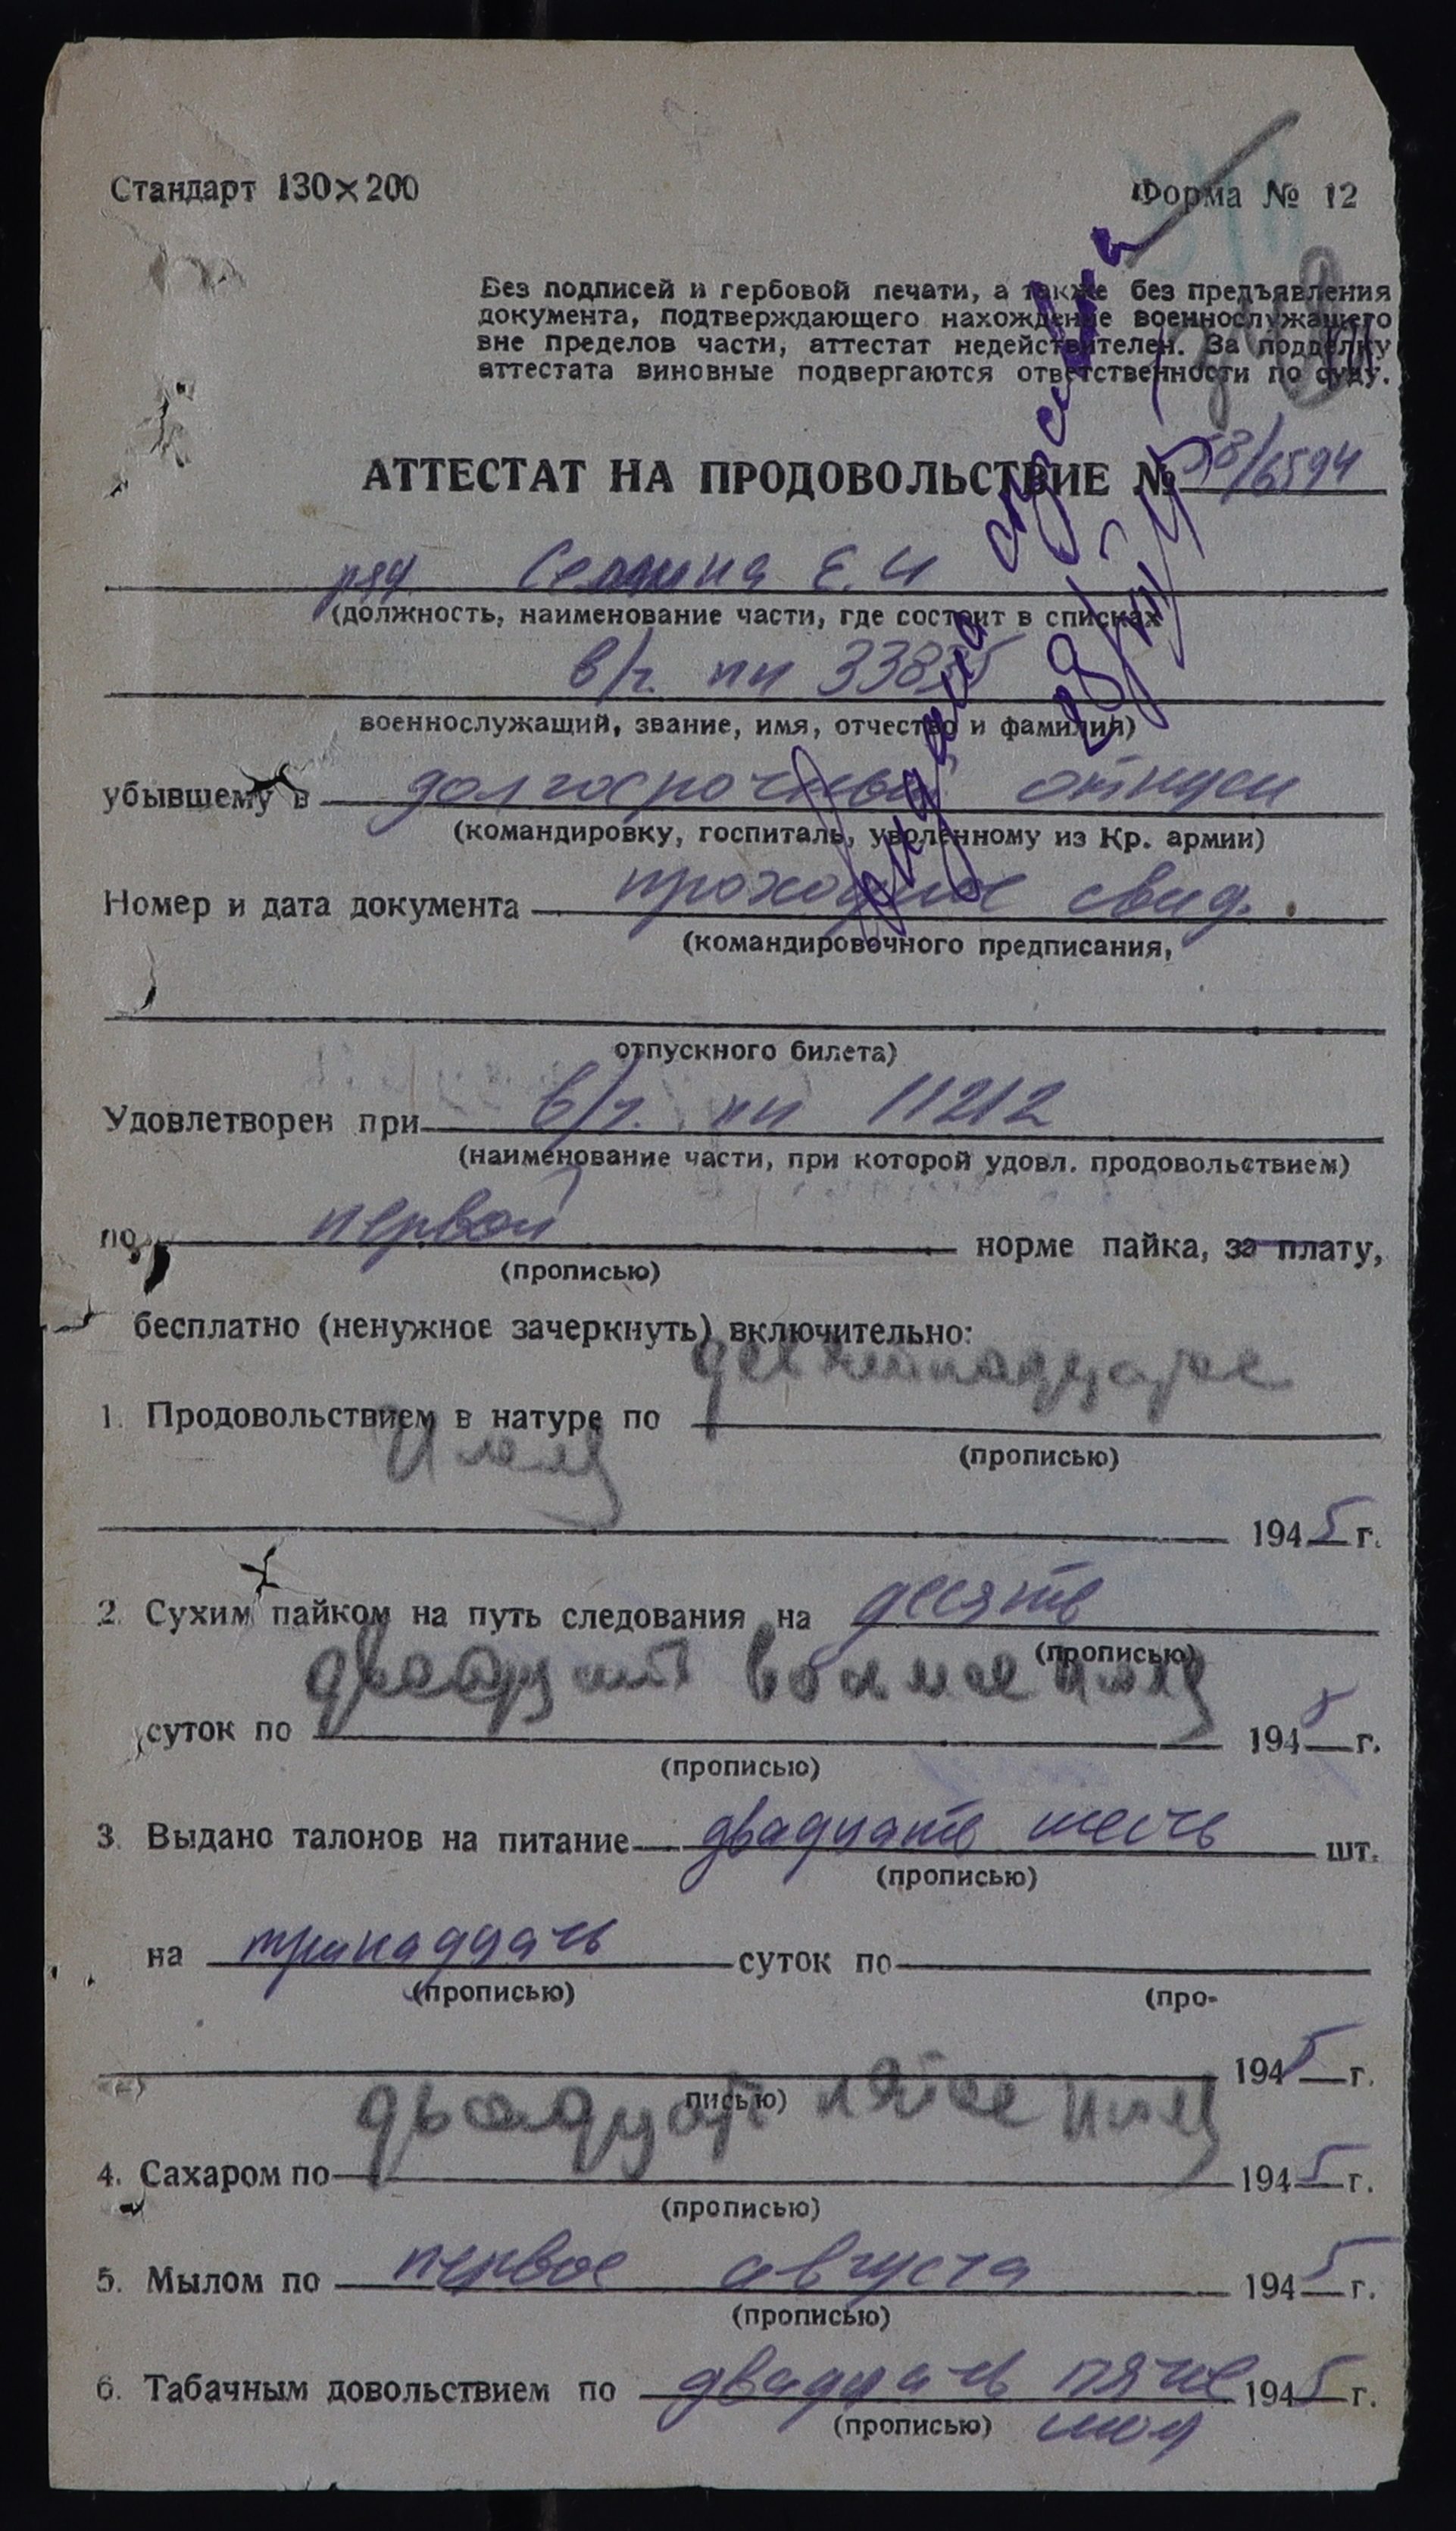 Стандарт 130×200
Форма № 12
Без подписей и гербовой печати, а также без предъявления
документа, подтверждающего нахождение военнослужащего
вне пределов части, аттестат недействителен. За подделку
аттестата виновные подвергаются ответственности по суду.
АТТЕСТАТ НА ПРОДОВОЛЬСТВИЕ № 58/6594
ряд. Е. И
(должность, наименование части, где состоит в списках
в/ч. пп 33835
военнослужащий, звание, имя, отчество и фамилия)
убывшему в долгосрочный отпуск
(командировку, госпиталь, уволенному из Кр. армии)
Номер и дата документа проходное свид.
(командировочного предписания,
отпускного билета)
Удовлетворен при в/ч. пп 11212
(наименование части, при которой удовл. продовольствием)
по первой норме пайка, за плату,
(прописью)
бесплатно (ненужное зачеркнуть) включительно:
1. Продовольствием в натуре по девятнадцатое
(прописью)
июля 1945 г.
2. Сухим пайком на путь следования на десять
(прописью)
суток по двадцать восьмое июля 1945 г.
(прописью)
3. Выдано талонов на питание двадцать шесть шт.
(прописью)
на тринадцать суток по
(прописью) (про-
1945 г.
писью)
4. Сахаром по двадцать пятое июля 1945 г.
(прописью)
5. Мылом по первое августа 1945 г.
(прописью)
6. Табачным довольствием по двадцать пятое 1945 г.
(прописью) июля